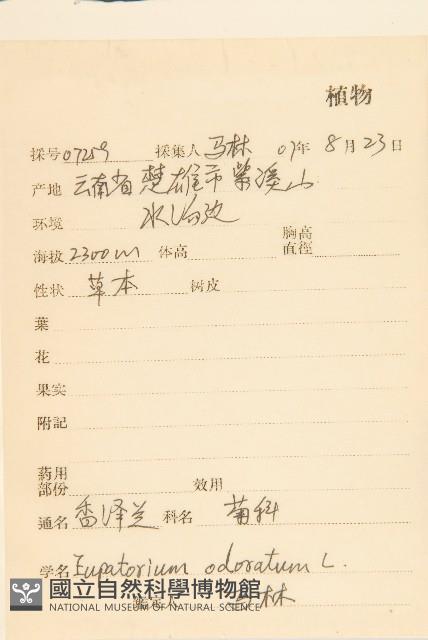 植物
採号 07259 採集人 马林 07年 8月23日
产地 云南省楚雄市紫溪山
环境 水沟边
海拔 2300m 体高 胸高直徑
性状 草本 树皮
葉
花
果实
附記
药用部份 效用
通名 香泽兰 科名 菊科
学名 Eupatorium odoratum L.
國立自然科學博物館
NATIONAL MUSEUM OF NATURAL SCIENCE
林